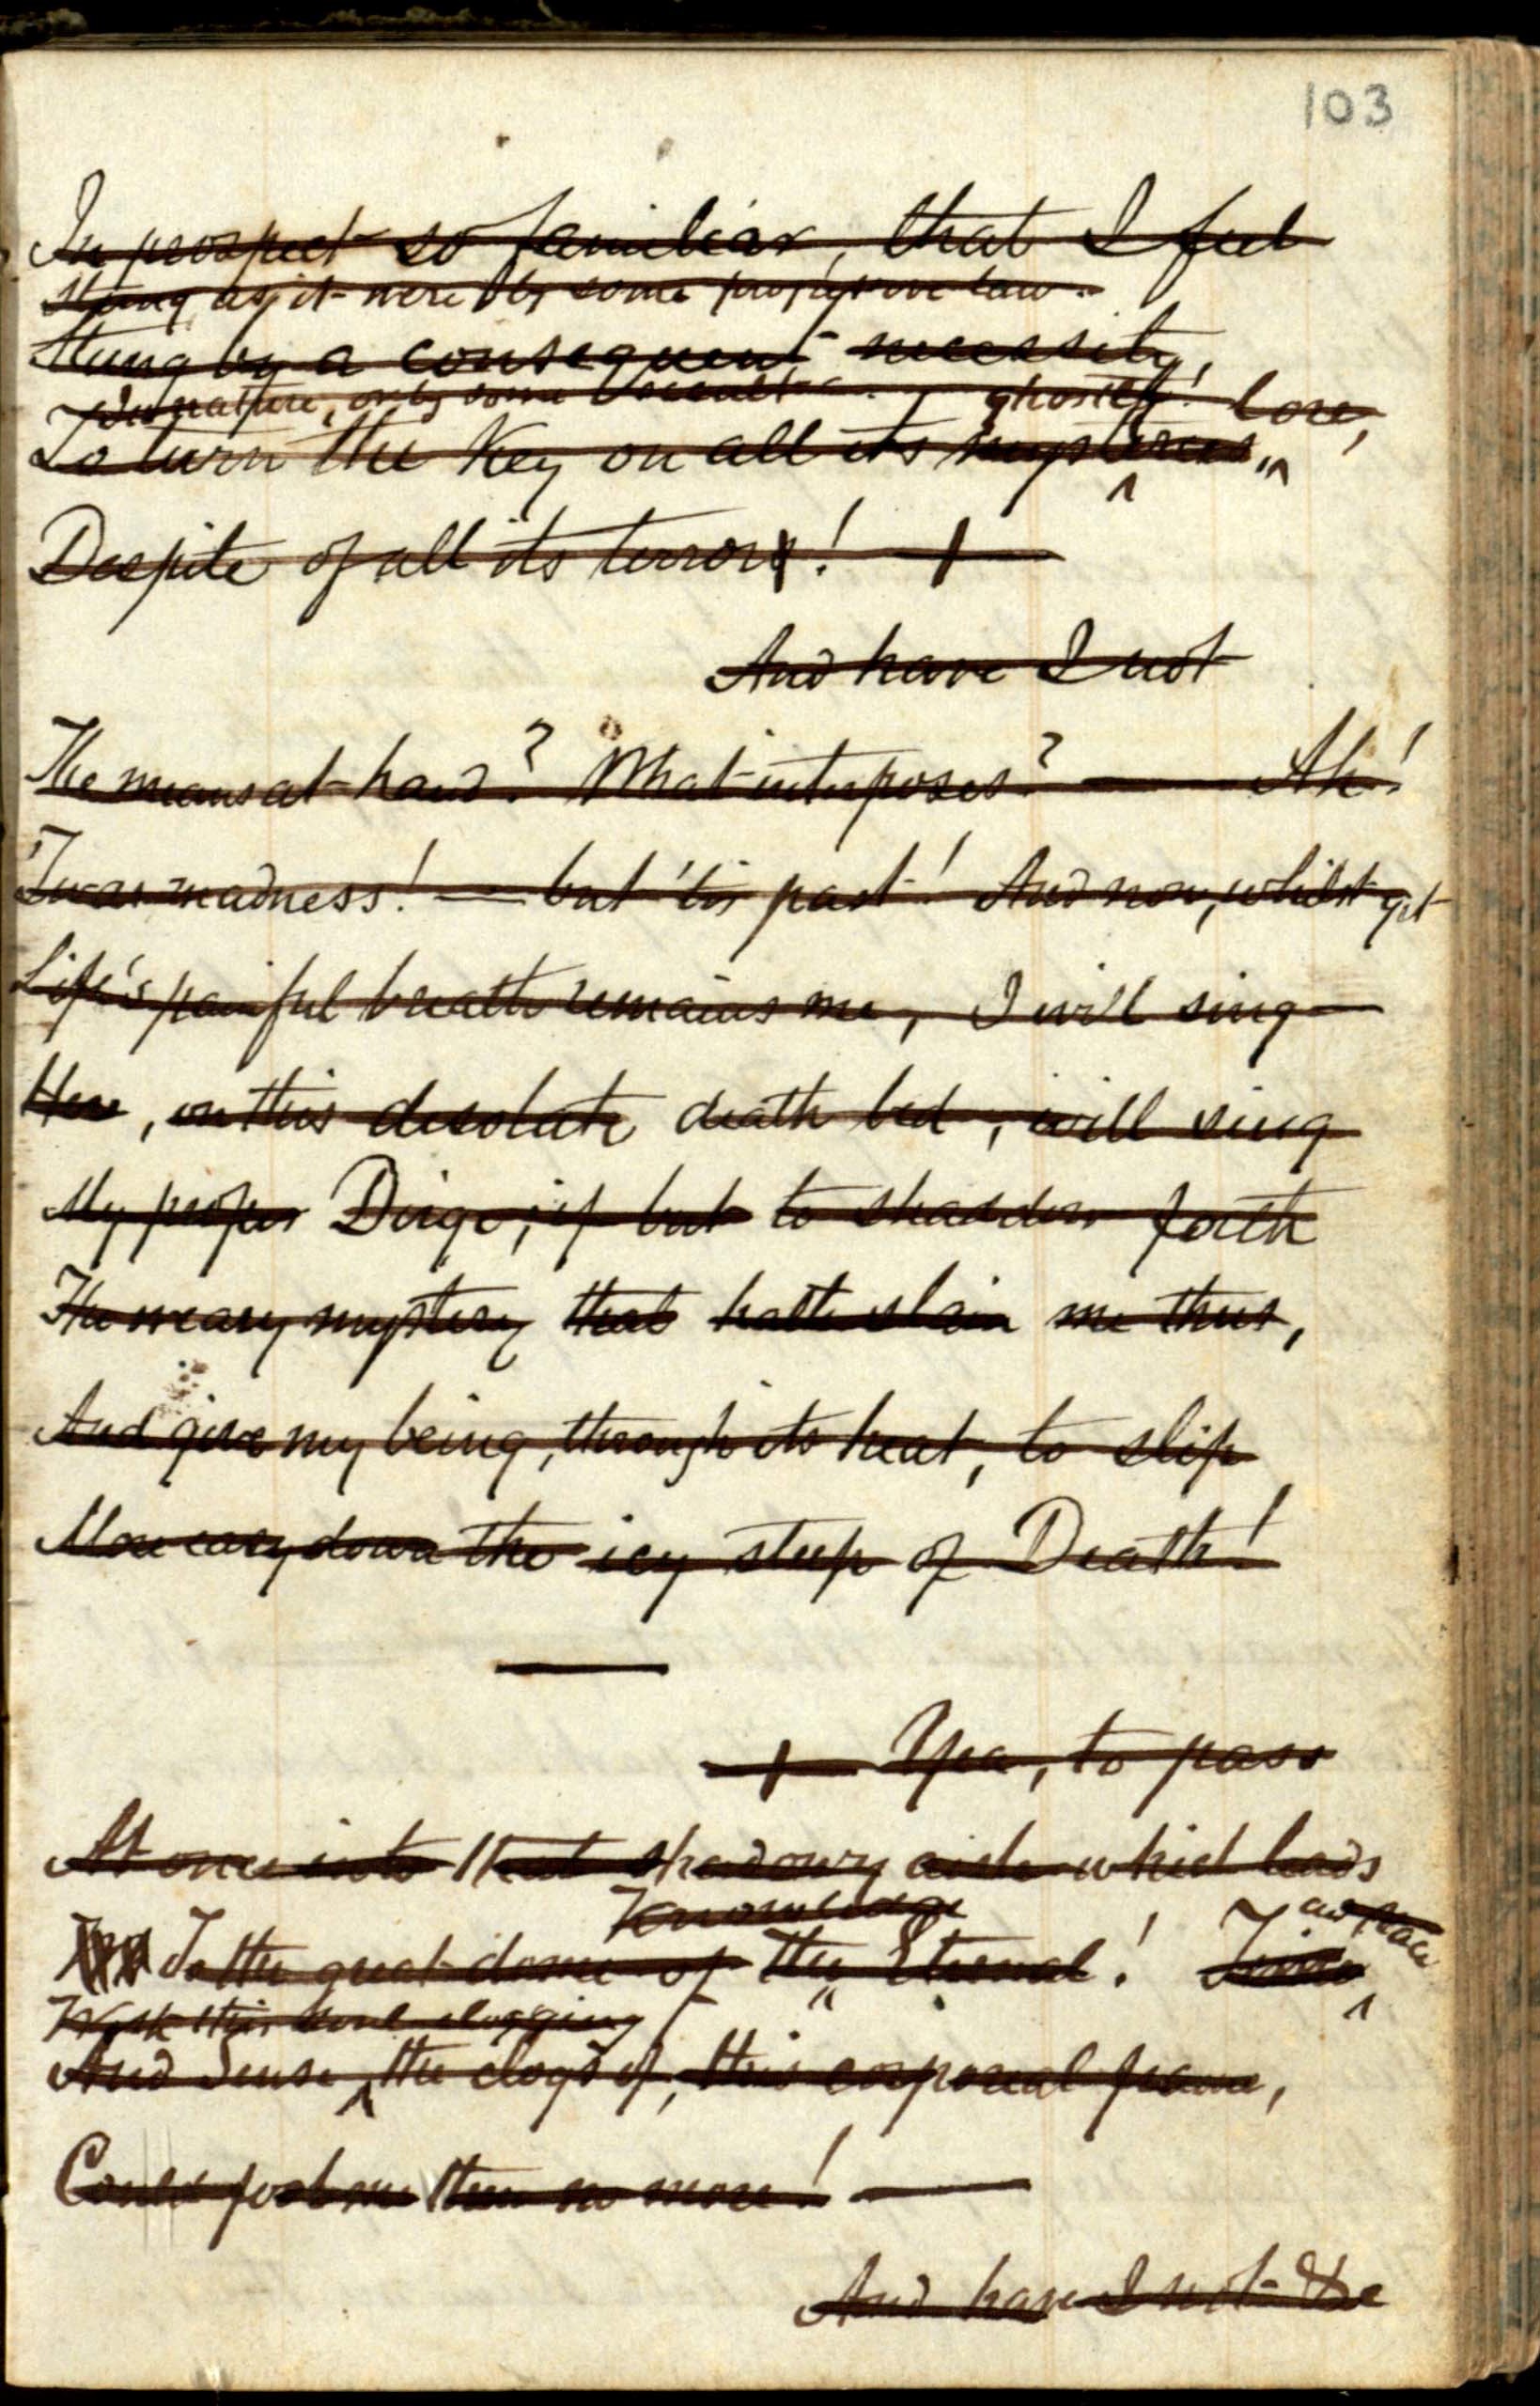 103
In prospect so familiar, that I feel
Stung as it were by some law.
Stung by a consequent necessity,
nature, only some ghostly! lore,
To turn the Key on all its mysteries,
Despite of all its terrors! — + —
And have I not
The means at hand? What interposes? — Ah!
'Twas madness! — but 'tis past! And now, whilst yet
Life's painful breath remains me, I will sing —
Here, on this desolate death bed, will sing
My proper Dirge; if but to shaddow forth
The weary mystery that hath slain me thus,
And give my being, through its heat, to slip
More easy down the icy steep of Death!
—
+ Yea, to pass
At once into that shadowy aisle which leads
Knowledge and place
To the great dome of the Eternal! Time
this soul clogging
And Sense, the clogs of, this corporeal frame,
Could fool me then no more! —
And have I not &c